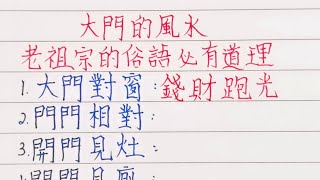 大門的風水
老祖宗的俗語必有道理
1.大門對窗:錢財跑光
2.門門相對:
3.開門見灶:
4.開門見廁: